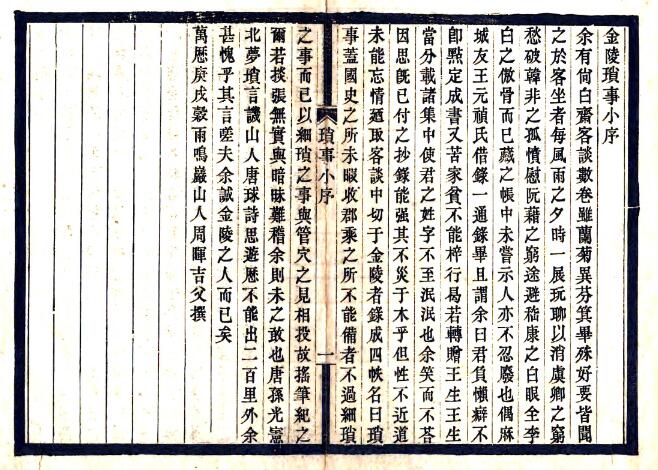 金陵瑣事小序
余有尙白齋客談數卷雖蘭菊異芬箕畢殊好要皆聞
之於客坐者每風雨之夕時一展玩聊以消虞卿之窮
愁破韓非之孤憤慰阮藉之窮途避嵇康之白眼全李
白之傲骨而已藏之帳中未嘗示人亦不忍廢也偶麻
城友王元禎氏借錄一通錄畢且謂余曰君負懶癖不
卽㸃定成書又苦家貧不能梓行曷若轉贈王生王生
當分載諸集中使君之姓字不至泯泯也余笑而不荅
因思旣已付之抄錄能强其不災于木乎但性不近道
未能忘情廼取客談中切于金陵者錄成四帙名曰瑣
事蓋國史之所未暇收郡乘之所不能備者不過細瑣
瑣事小序
一
之事而已以細瑣之事與管穴之見相投故搖筆紀之
爾若掞張無實與暗昧難稽余則未之敢也唐孫光憲
北夢瑣言譏山人唐球詩思遊歷不能出二百里外余
甚愧乎其言嗟夫余誠金陵之人而已矣
萬歷庚戌穀雨鳴巖山人周暉吉父撰